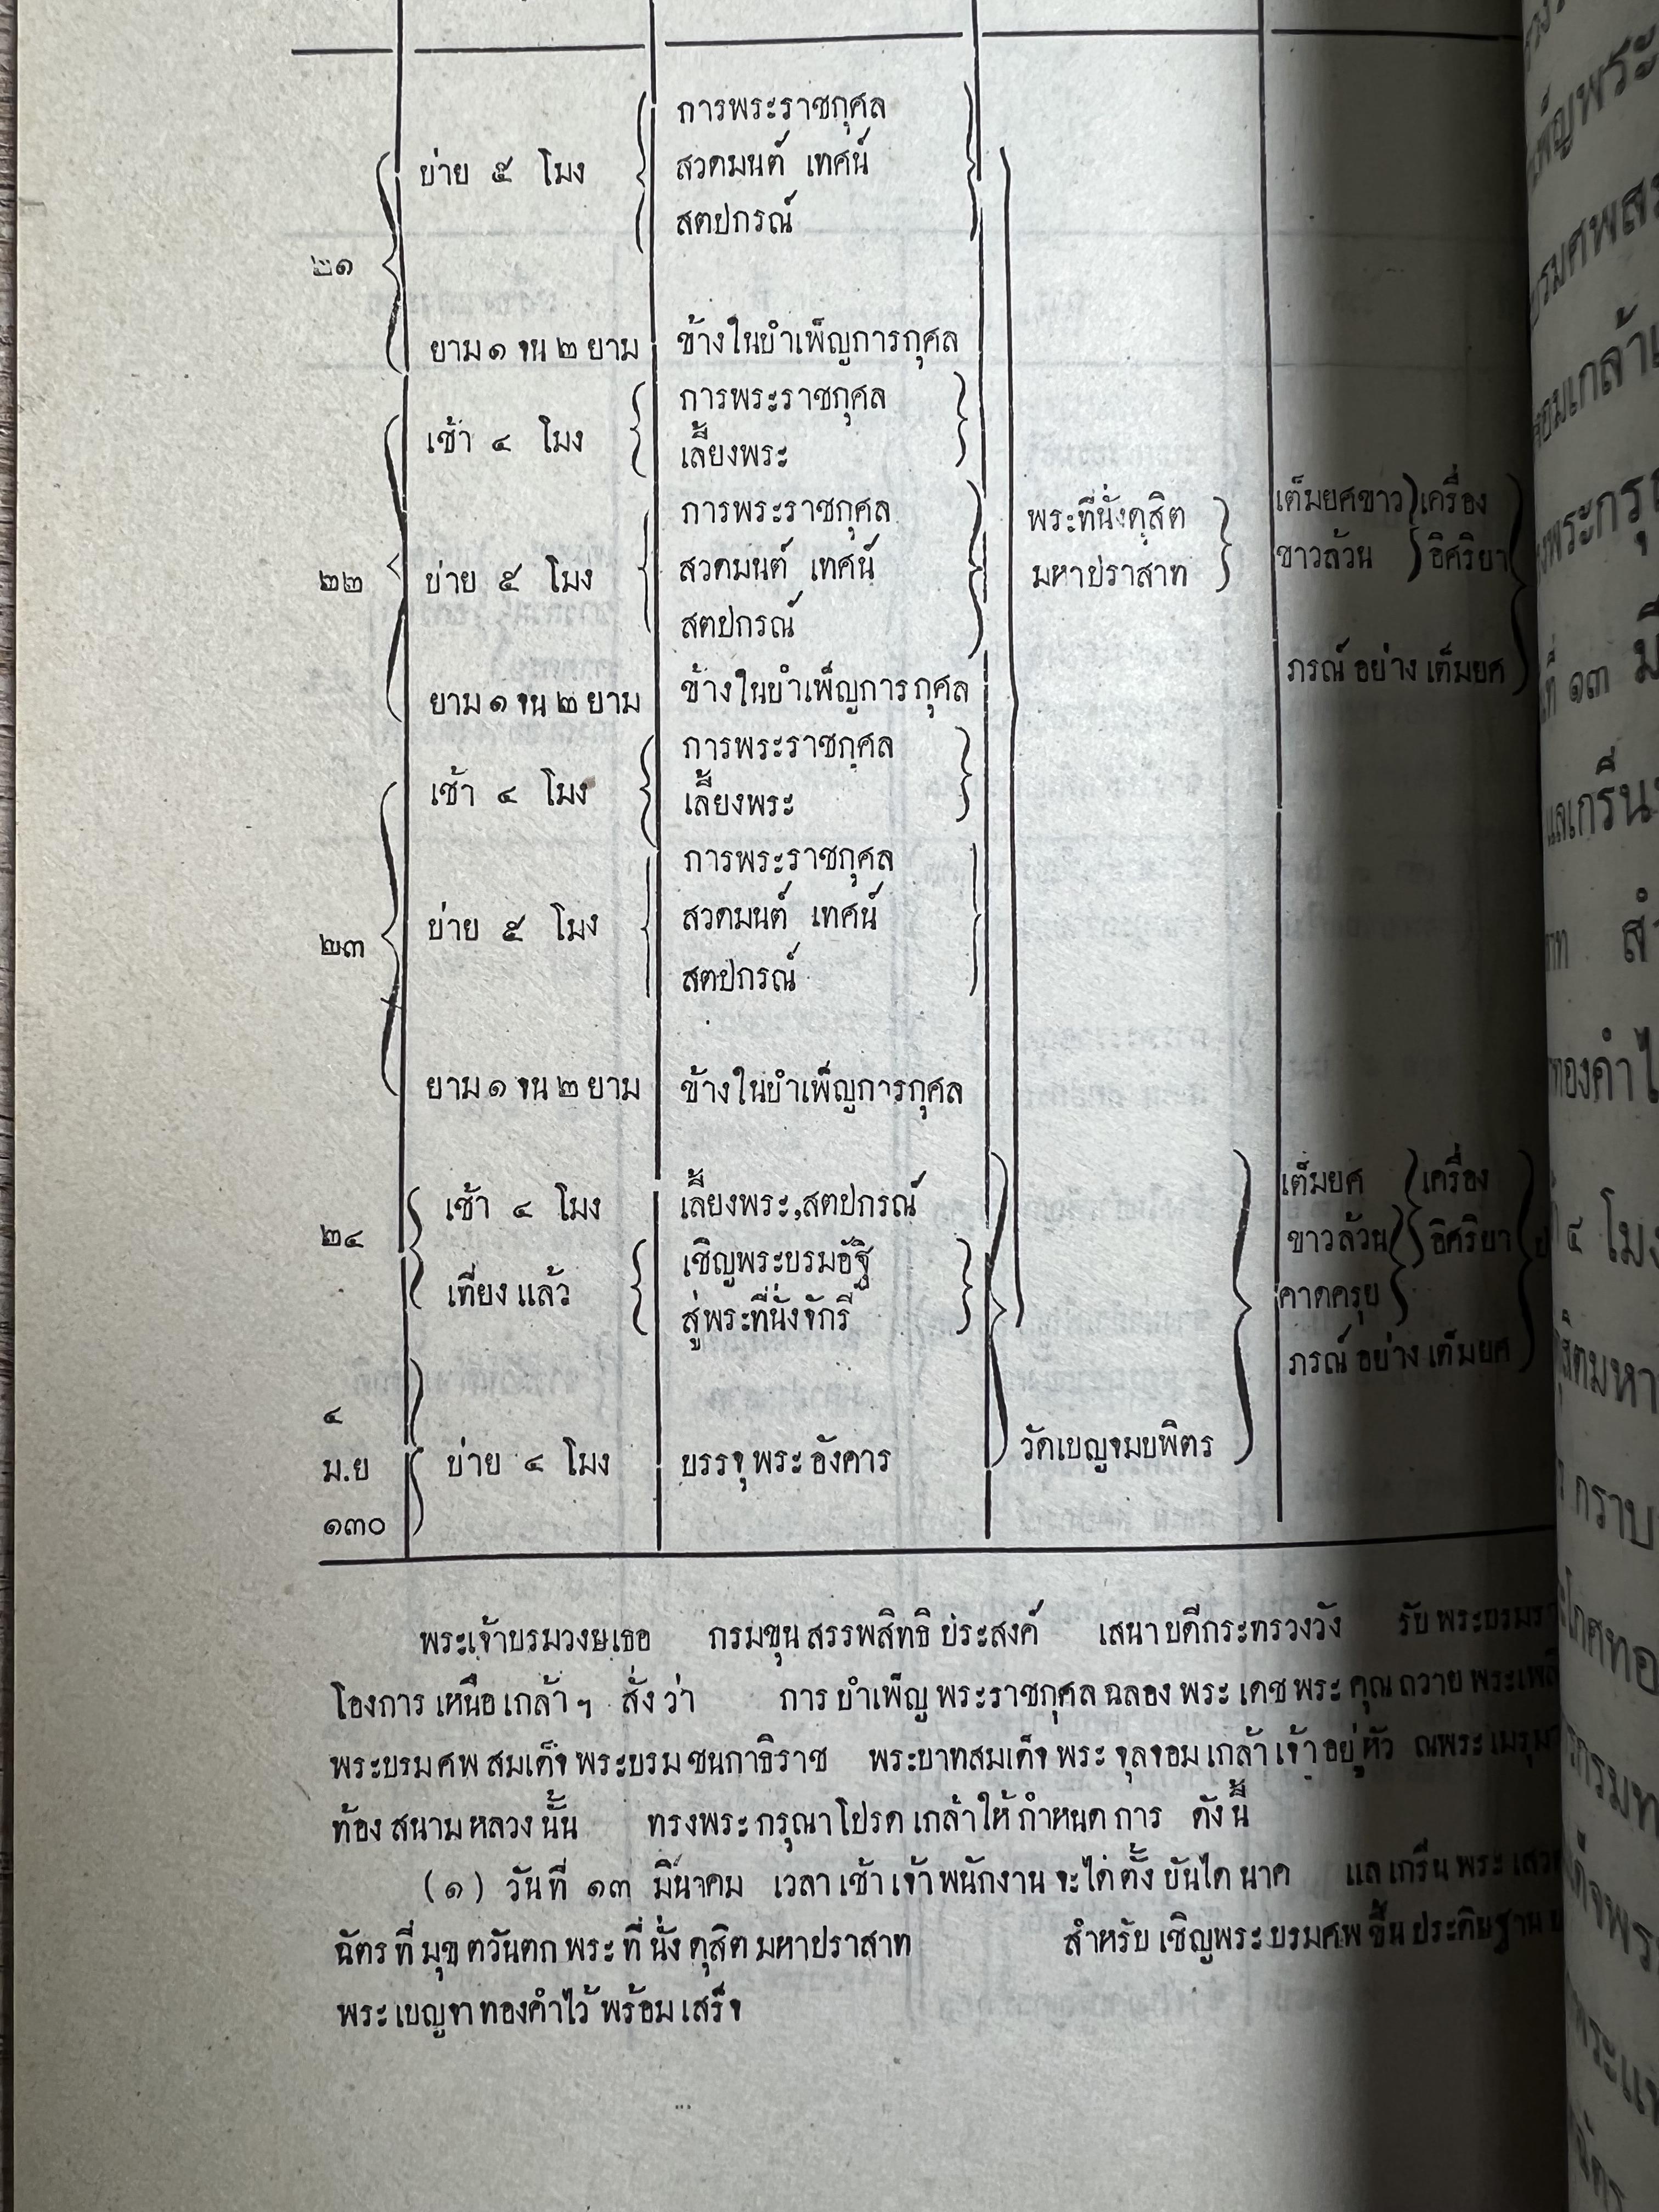 บ่าย ๕ โมง
การพระราชกุศล
สวดมนต์ เทศน์
สตปกรณ์
๒๑
ยาม ๑ จน ๒ ยาม
ข้างในบำเพ็ญการกุศล
เช้า ๔ โมง
การพระราชกุศล
เลี้ยงพระ
๒๒
บ่าย ๕ โมง
การพระราชกุศล
สวดมนต์ เทศน์
สตปกรณ์
พระที่นั่งดุสิต
มหาปราสาท
เต็มยศขาว
ขาวล้วน
เครื่อง
อิศริยา
ภรณ์ อย่าง เต็มยศ
ยาม ๑ จน ๒ ยาม
ข้างในบำเพ็ญการกุศล
เช้า ๔ โมง
การพระราชกุศล
เลี้ยงพระ
๒๓
บ่าย ๕ โมง
การพระราชกุศล
สวดมนต์ เทศน์
สตปกรณ์
ยาม ๑ จน ๒ ยาม
ข้างในบำเพ็ญการกุศล
๒๔
เช้า ๔ โมง
เลี้ยงพระ,สตปกรณ์
เที่ยง แล้ว
เชิญพระบรมอัฐิ
สู่พระที่นั่งจักรี
เต็มยศ
ขาวล้วน
คาดครุย
เครื่อง
อิศริยา
ภรณ์ อย่าง เต็มยศ
๔
ม.ย
๑๓๐
บ่าย ๔ โมง
บรรจุ พระ อังคาร
วัดเบญจมบพิตร
พระเจ้าบรมวงษเธอ กรมขุน สรรพสิทธิ ประสงค์ เสนา บดีกระทรวงวัง รับ พระบรมรา
โองการ เหนือ เกล้า ฯ สั่ง ว่า การ บำเพ็ญ พระราชกุศล ฉลอง พระ เดช พระ คุณ ถวาย พระเพลิ
พระบรม ศพ สมเด็จ พระบรม ชนกาธิราช พระบาทสมเด็จ พระ จุลจอม เกล้า เจ้า อยู่ หัว ณพระ เมรุม
ท้อง สนาม หลวง นั้น ทรงพระ กรุณา โปรด เกล้าให้ กำหนด การ ดัง นี้
(๑) วันที่ ๑๓ มีนาคม เวลา เช้า เจ้า พนักงาน จะได้ ตั้ง บันได นาค แล เกรีน พระ เสว
ฉัตร ที่ มุข ตวันตก พระ ที่ นั่ง ดุสิต มหาปราสาท สำหรับ เชิญพระ บรมศพ ขึ้น ประดิษฐาน
พระ เบญจา ทองคำไว้ พร้อม เสร็จ